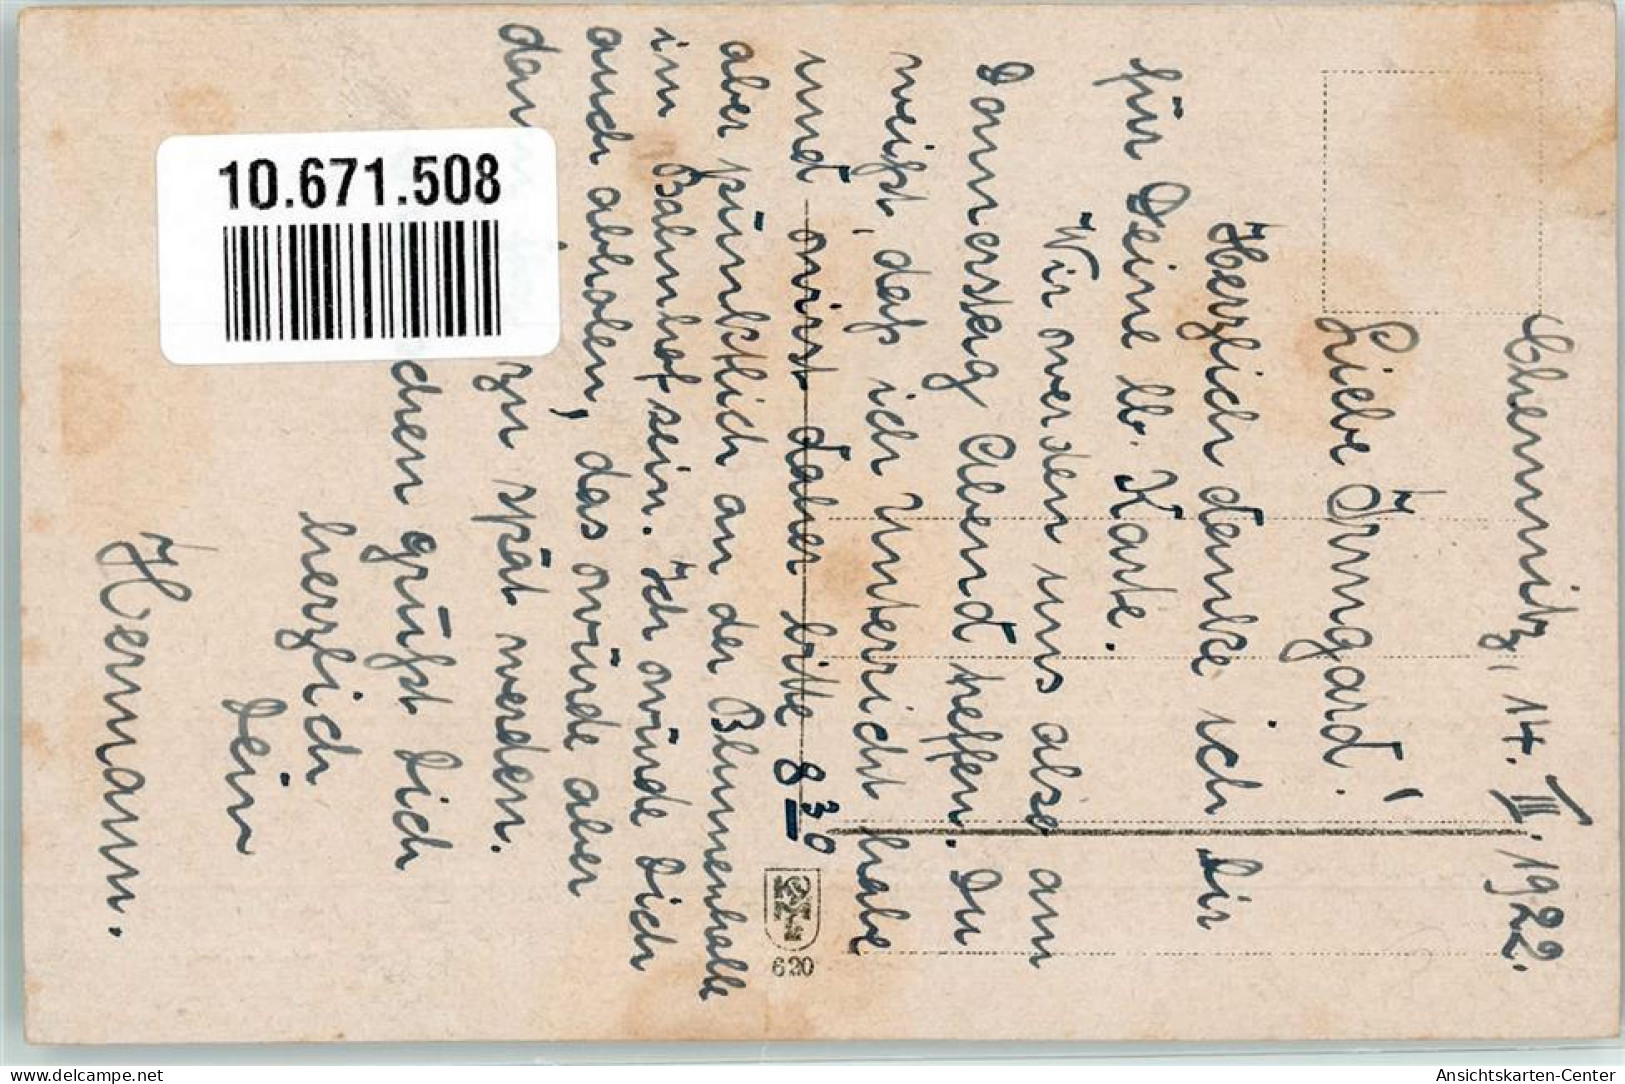 Chemnitz, 14. III. 1922.
Liebe Irmgard!
Herzlich danke ich Dir
für Deine lb. Karte.
Wir werden uns also am
Donnerstag Abend treffen. Du
weißt, daß ich Unterricht habe
und wirst daher bitte 8³⁰
aber pünktlich an der Blumenhalle
im Bahnhof sein. Ich würde Dich
auch abholen, das würde aber
dan zu spät werden.
chen grüßt Dich
herzlich
Dein
Hermann.
10.671.508
620
delcampe.net
Ansichtskarten-Center